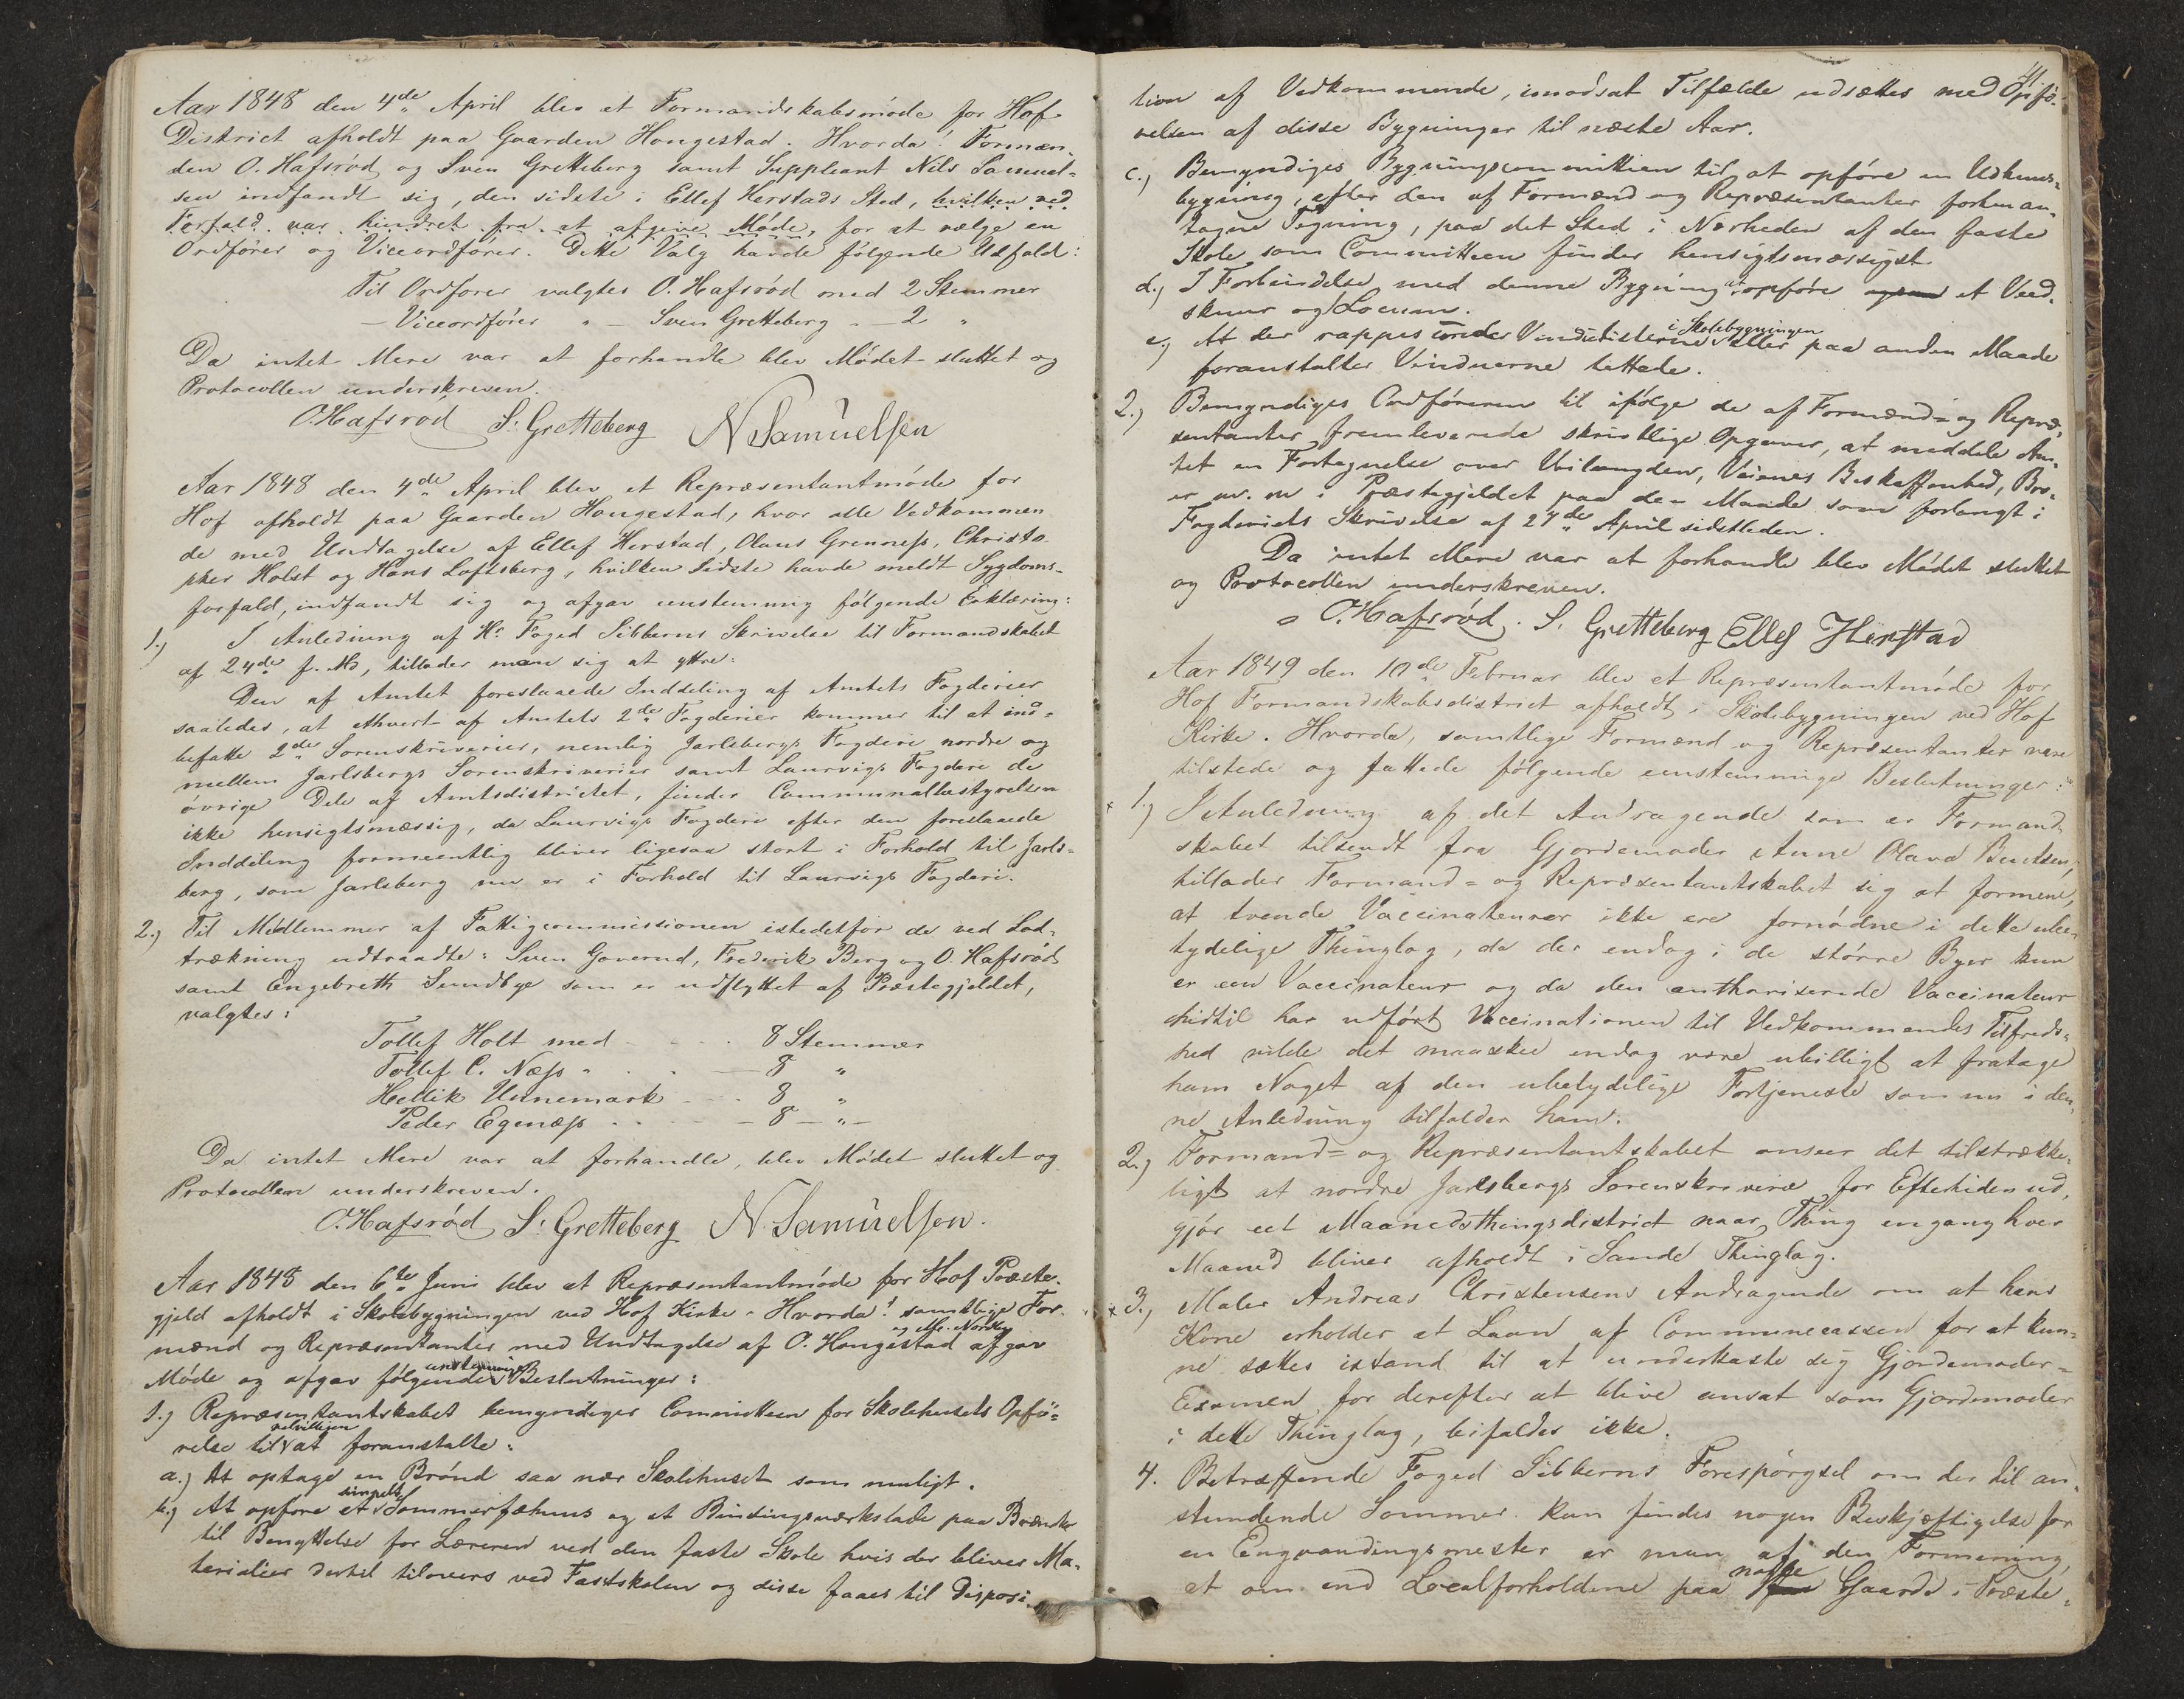 Aar 1848 den 4de April blev et Formandskabsmøde for Hof
District afholdt paa Gaarden Hongestad. Hvorda! Formæn-
den O. Hafsrød og Sven Gretteberg samt Suppleant Nils Samuel-
sen indfandt sig, den sidste i Ellef Herstads Sted, hvilken ved
Forfald var hindret fra at afgive Møde, for at vælge en
Ordfører og Viceordfører. Dette Valg havde følgende Udfald:
Til Ordfører valgtes O. Hafsrød med 2 Stemmer
— Viceordfører " — Sven Gretteberg " — 2 "
Da intet Mere var at forhandle blev Mødet sluttet og
Protocollen underskreven.
O. Hafsrød S. Gretteberg N. Samuelsen
Aar 1848 den 4de April blev et Repræsentantmøde for
Hof afholdt paa Gaarden Hongestad, hvor alle Vedkommen
de med Undtagelse af Ellef Herstad, Olaus Grenness, Christo-
pher Holst og Hans Loftsberg, hvilken Sidste havde meldt Sygdoms-
forfald, indfandt sig og afgav eenstemmig følgende Erklæring:
1.) I Anledning af Hr. Foged Sibberns Skrivelse til Formandskabet
af 24de f. Md, tillader man sig at yttre:
Den af Amtet foreslaaede Inddeling af Amtets Fogderier
saaledes, at ethvert af Amtets 2de Fogderier kommer til at ind-
befatte 2de Sorenskriverier, nemlig Jarlsbergs Fogderi nordre og
mellem Jarlsbergs Sorenskriverier samt Laurvigs Fogderi de
øvrige Dele af Amtsdistrictet, finder Communalbestyrelsen
ikke hensigtsmæssig, da Laurvigs Fogderi efter den foreslaaede
Inddeling formeentlig bliver ligesaa stort i Forhold til Jarls-
berg, som Jarlsberg nu er i Forhold til Laurvigs Fogderi.
2.) Til Medlemmer af Fattigcommissionen istedetfor de ved Lod-
trækning udtraadte: Sven Goverud, Frederik Berg og O. Hafsrød
samt Engebreth Sundbye som er udflyttet af Præstegjeldet,
valgtes:
Tollef Holt med - - - 8 Stemmer
Tollef C. Næss - . . — 8 "
Hellik Unnemark - - - 8 "
Peder Egenæss - - - — 8 — " —
Da intet Mere var at forhandle, blev Mødet sluttet og
Protocollen underskreven.
O. Hafsrød S. Gretteberg N. Samuelsen.
Aar 1848 den 6te Juni blev et Repræsentantmøde for Hof Præste-
gjeld afholdt i Skolebygningen ved Hof Kirke. Hvorda! samtlige For-
mænd og Repræsentanter med Undtagelse af O. Hongestad og Mr. Nordby afgav
Møde og afgav følgende eenstemmige Beslutninger:
1.) Repræsentantskabet bemyndiger Committeen for Skolehusets Opfø-
relse til velvilligen at foranstalte:
a.) At optage en Brønd saa nær Skolehuset som muligt.
b.) At opføre et simpelt Sommerfæhuus og et Bindingsværkslade paa
til Benyttelse for Læreren ved den faste Skole hvis der bliver Ma-
terialier dertil tilovers ved Fastskolen og disse faaes til Disposi-
tion af Vedkommende, imodsat Tilfælde udsættes med Opfø-
relsen af disse Bygninger til næste Aar.
c.) Bemyndiges Bygningscommitteen til at opføre en Udhuus-
bygning, efter den af Formænd og Repræsentanter forhen an-
tagne Tegning, paa det Sted i Nærheden af den faste
Skole som Committeen finder hensigtsmæssigst.
d.) I Forbindelse med denne Bygning at opføre ogsaa et Veed-
skuur og Locum.
e.) At der rappes under Vinduslisterne i Skolebygningen eller paa anden Maade
foranstalter Vinduerne tættede.
2.) Bemyndiges Ordføreren til ifølge de af Formænd- og Repræ-
sentanter fremleverede skriftlige Opgaver, at meddele Am-
tet en Fortegnelse over Veilængden, Veienes Beskaffenhed, Bro-
er m. m. i Præstegjeldet paa den Maade som forlangt i
Fogderiets Skrivelse af 24de April sidstleden.
Da intet Mere var at forhandle blev Mødet sluttet
og Protocollen underskreven.
O. Hafsrød. S. Gretteberg Ellef Herstad
Aar 1849 den 10de Februar blev et Repræsentantmøde for
Hof Formandskabsdistrict afholdt i Skolebygningen ved Hof
Kirke. Hvorda, samtlige Formænd og Repræsentanter vare
tilstede og fattede følgende eenstemmige Beslutninger:
1.) I Anledning af det Andragende som er Formand-
skabet tilsendt fra Gjordemoder Anne Olava Bentsen,
tillader Formand- og Repræsentantskabet sig at formene,
at tvende Vaccinateurer ikke ere fornødne i dette ube-
tydelige Thinglag, da der endog i de større Byer kun
er een Vaccinateur og da den authoriserede Vaccinateur
hidtil har udført Vaccinationen til Vedkommendes Tilfreds-
hed vilde det maaskee endog være ubilligt at fratage
ham Noget af den ubetydelige Fortjeneste som nu i den-
ne Anledning tilfalder ham.
2.) Formand- og Repræsentantskabet anseer det tilstrække-
ligt at nordre Jarlsbergs Sorenskriveri for Eftertiden ud-
gjør eet Maanedsthingsdistrict naar Thing engang hver
Maaned bliver afholdt i Sande Thinglag.
3.) Maler Andreas Christensens Andragende om at hans
Kone erholder et Laan af Communecassen for at kun-
ne sættes istand til at underkaste sig Gjordemoder-
Examen, for derefter at blive ansat som Gjordemoder
i dette Thinglag, bifaldes ikke.
4. Betræffende Foged Sibberns Forespørgsel om der til an-
stundende Sommer kan findes nogen Beskjæftigelse for
en Engvandingsmester er man af den Formening,
at om end Localforholdene paa nogle Gaarde i Præste-